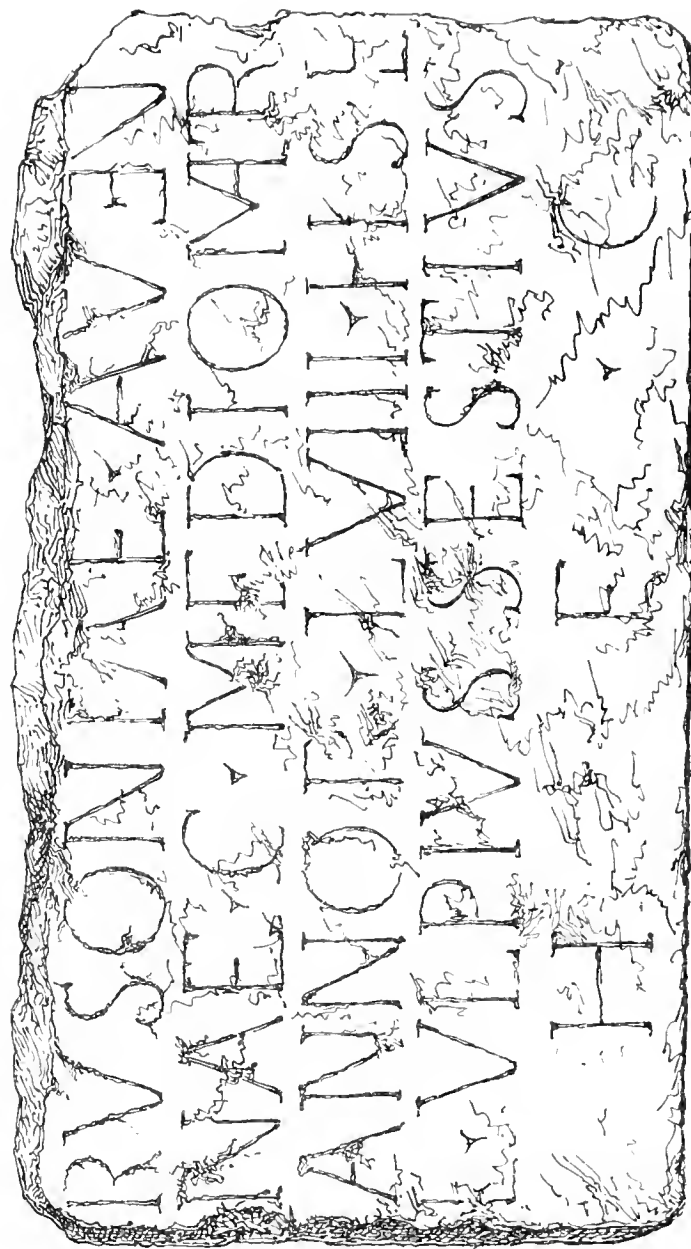 RVSONIAE·AVEN
NAE·C·MEDIOMR
ANNOR·L·VIII·H·S·E
L·VLPIVS·SESTIVS
H·F·C